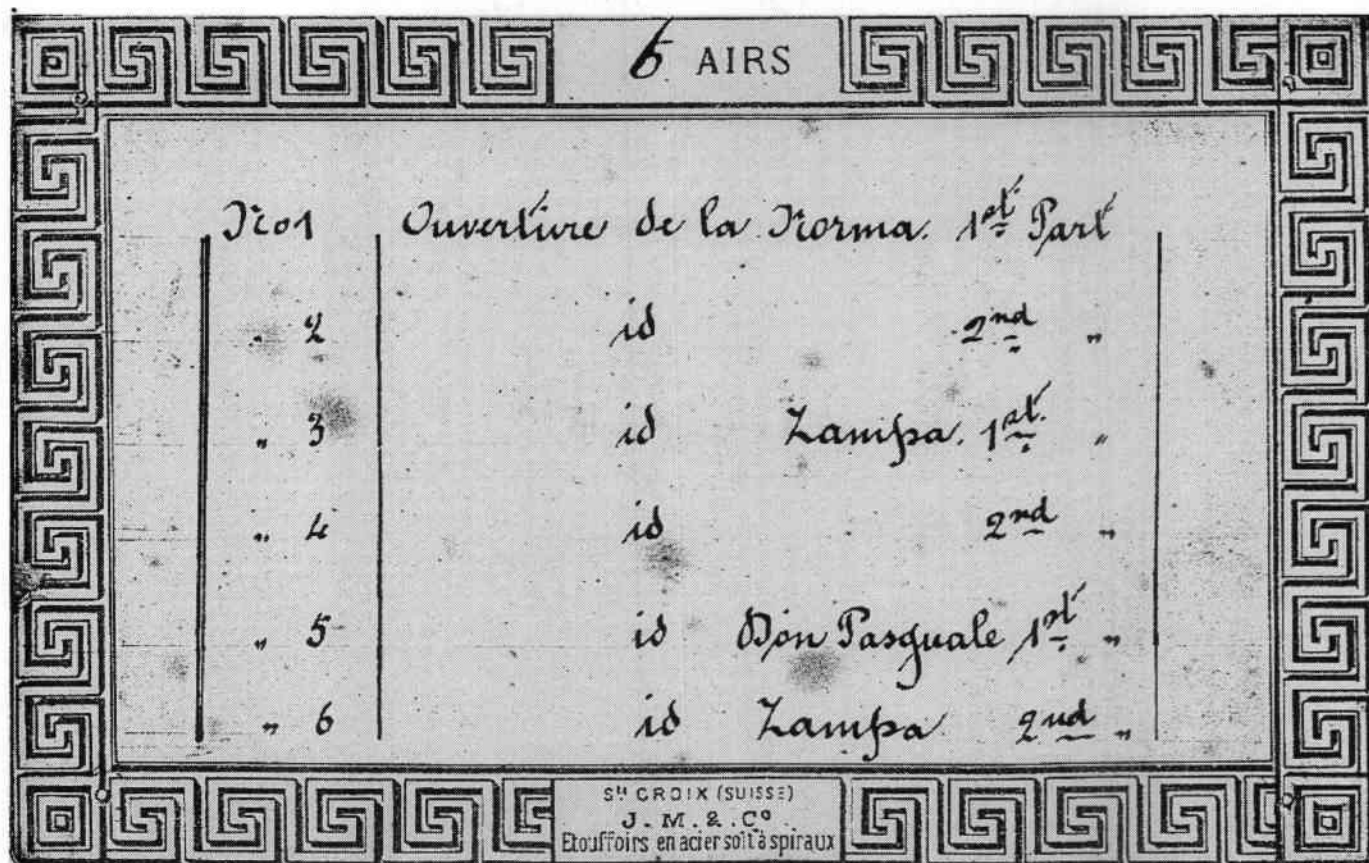 6 AIRS
No 1 Ouverture de la Norma. 1st Part
" 2 id 2nd "
" 3 id Zampa. 1st "
" 4 id 2nd "
" 5 id Don Pasquale 1st "
" 6 id Zampa 2nd "
Ste CROIX (SUISSE)
J. M. & Co
Etouffoirs en acier soit à spiraux